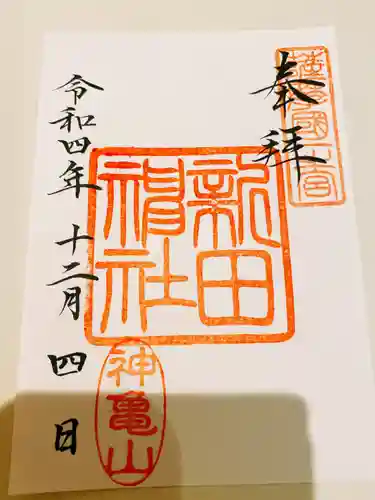 奉拝
薩摩國一宮
新田神社
令和四年十二月四日
神亀山